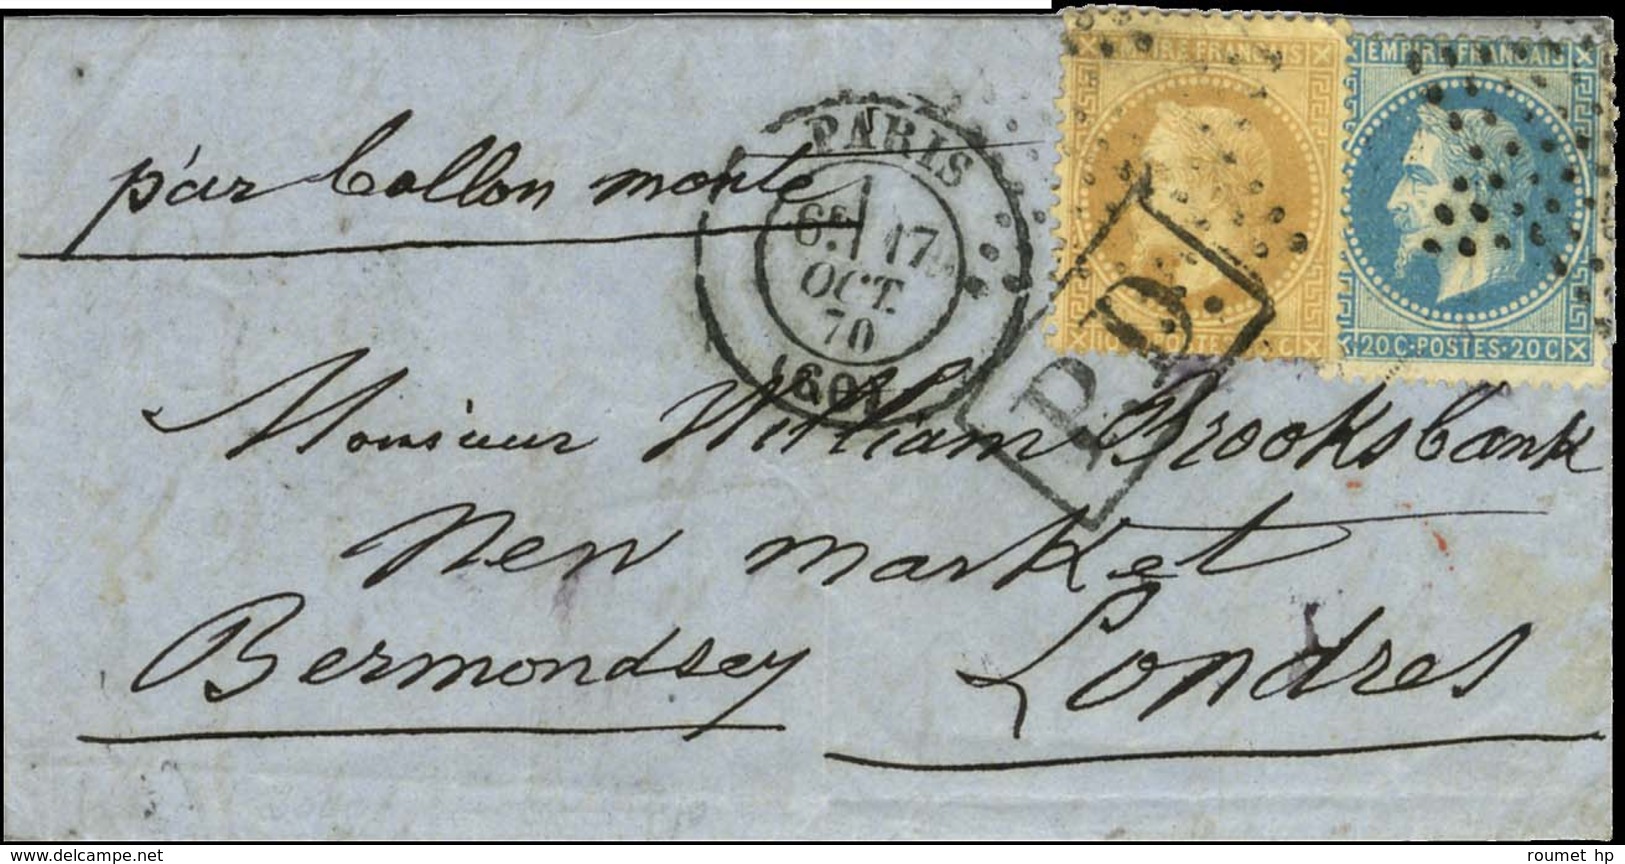 EMPIRE FRANCAIS
EMPIRE FRANCAIS
PARIS
par ballon monté
6E 17
OCT.
70
(60)
P.D.
10 C POSTES C
20 C · POSTES · 20 C
Monsieur William Brooksbank
New market
Bermondsey Londres
www.delcampe.net
roumet hp